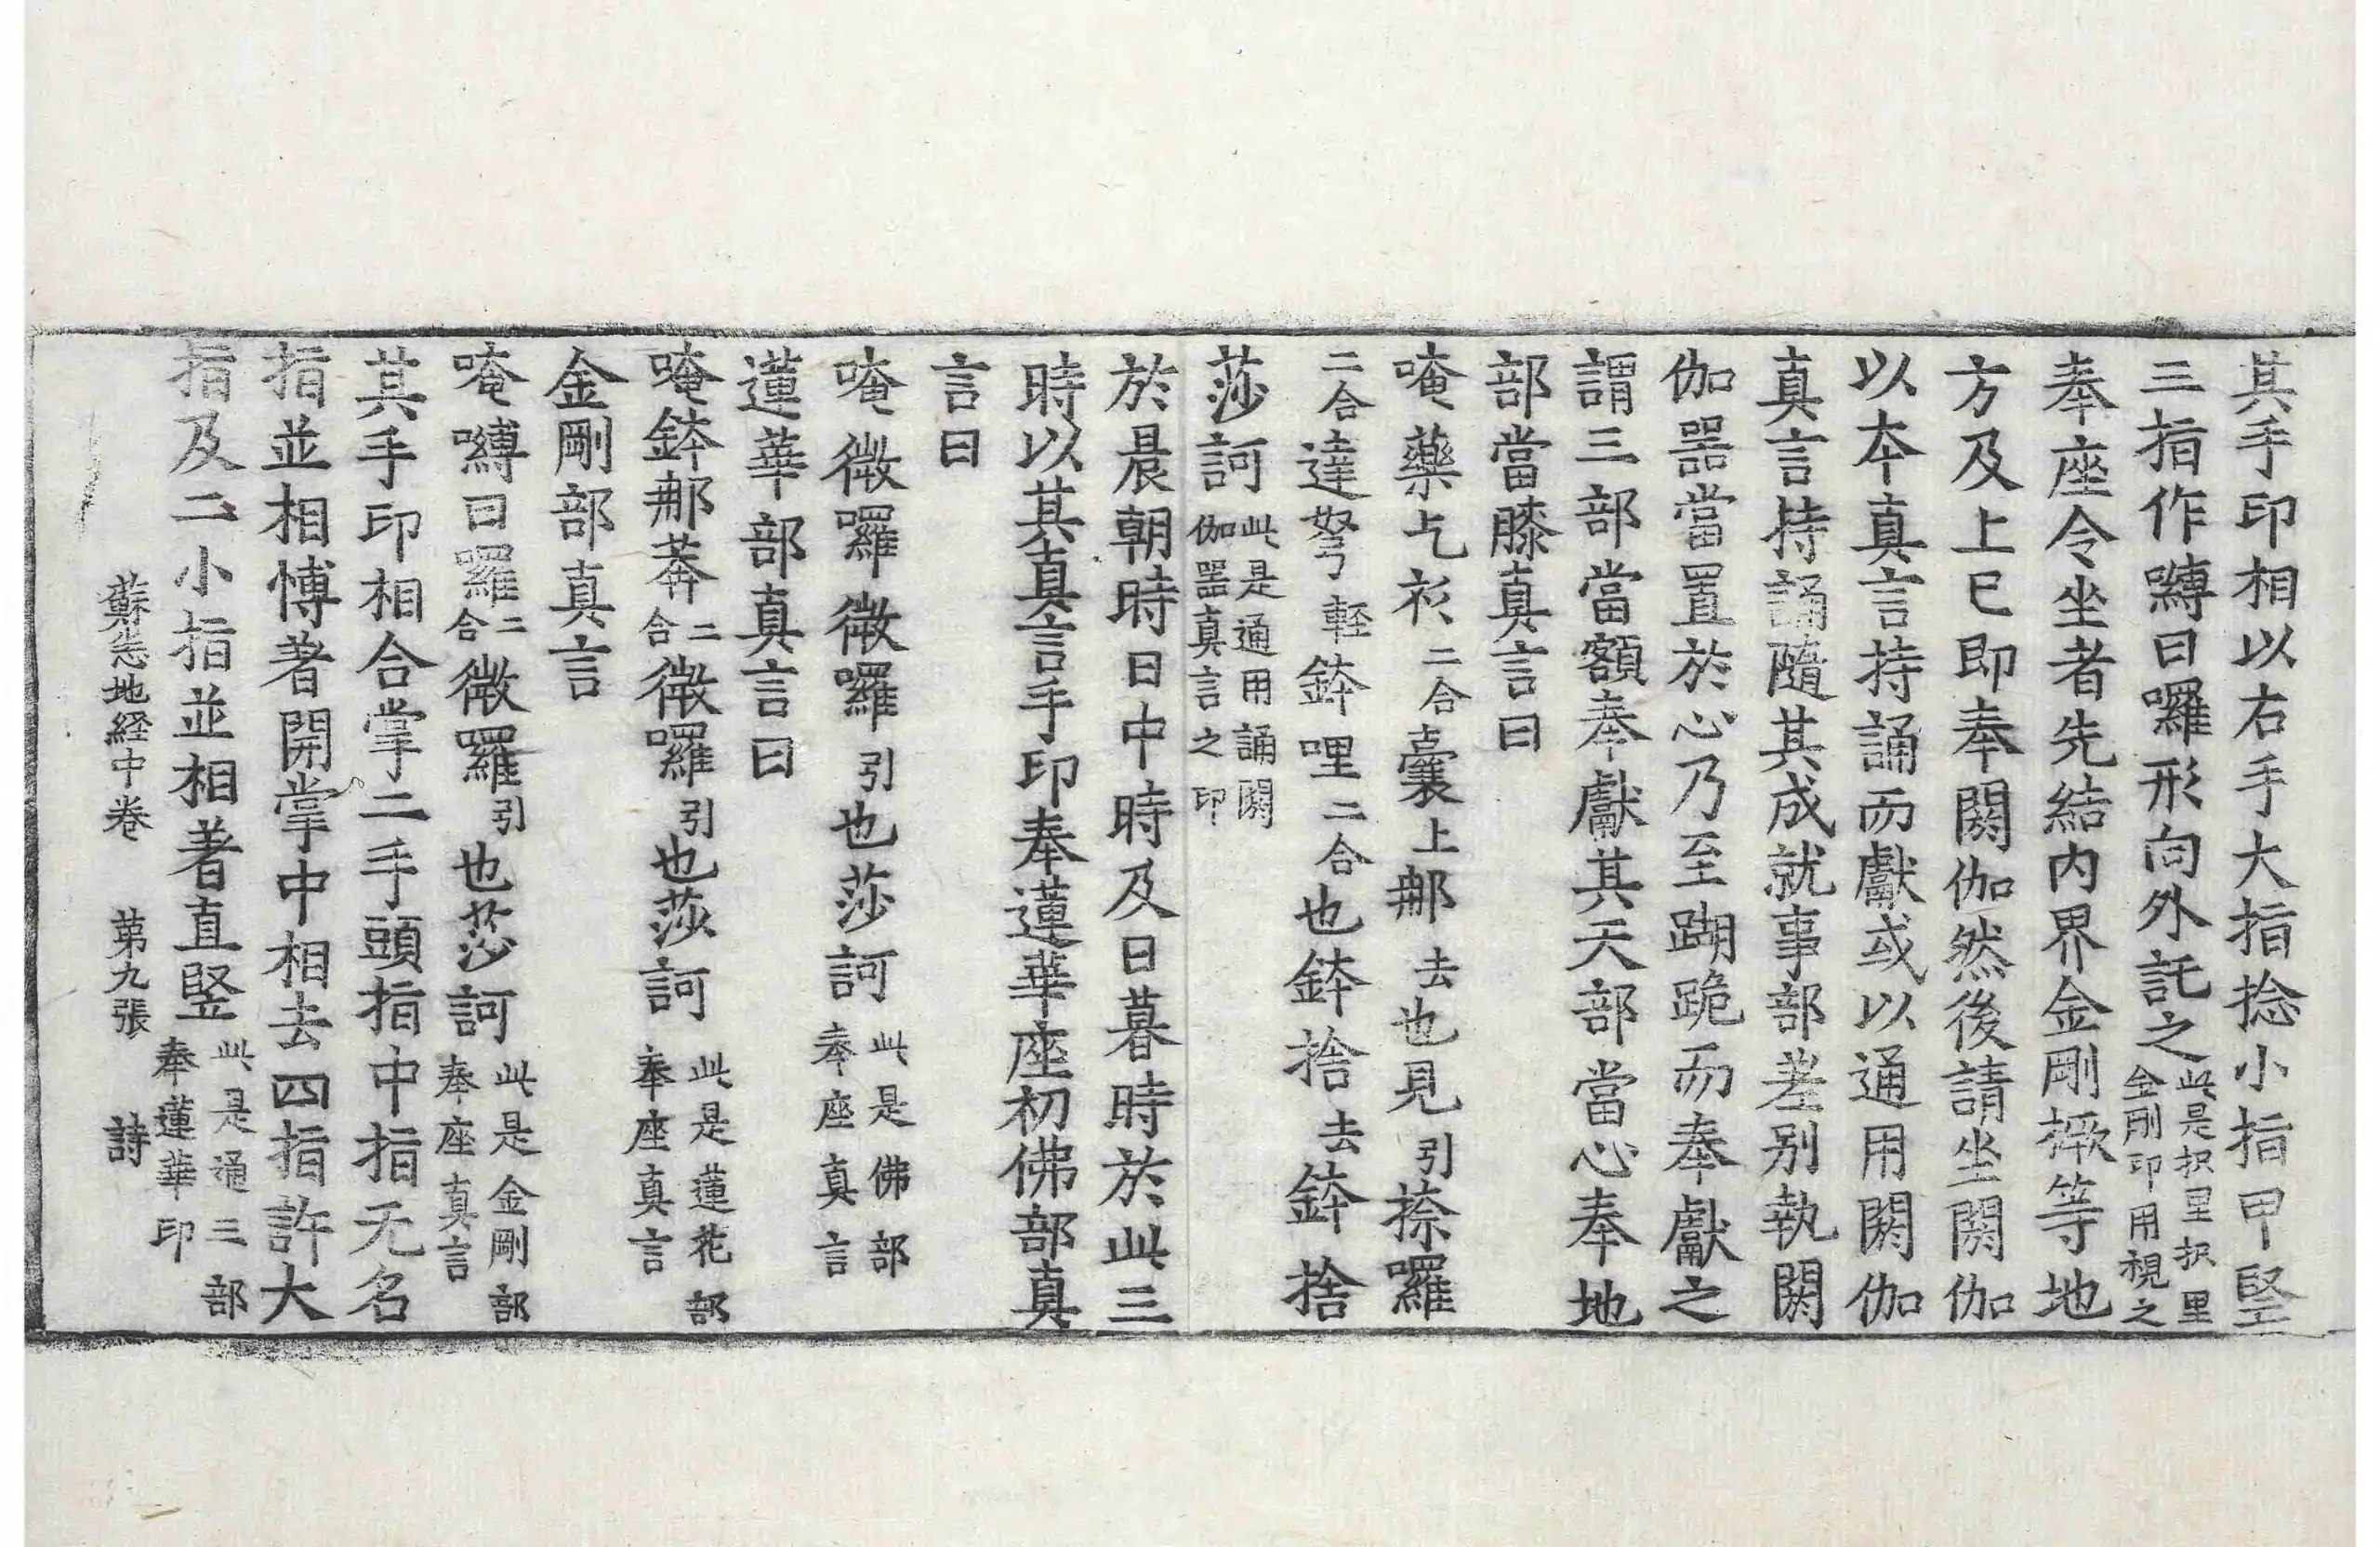 其手印相以右手大指捻小指甲竪
三指作嚩曰囉形向外託之此是枳里枳里金剛印用視之
奉座令坐者先結內界金剛橛等地
方及上已即奉閼伽然後請坐閼伽
以本真言持誦而獻或以通用閼伽
真言持誦隨其成就事部差別執閼
伽器當置於心乃至䠒跪而奉獻之
謂三部當額奉獻其天部當心奉地
部當膝真言曰
唵藥乞衫二合囊上那去也見引捺囉
二合達弩輕鉢哩二合也鉢捨去鉢捨
莎訶此是通用誦閼伽器真言之印
於晨朝時日中時及日暮時於此三
時以其真言手印奉蓮華座初佛部真
言曰
唵微囉微囉引也莎訶此是佛部奉座真言
蓮華部真言曰
唵鉢那莽二合微囉引也莎訶此是蓮花部奉座真言
金剛部真言
唵嚩曰羅二合微囉引也莎訶此是金剛部奉座真言
其手印相合掌二手頭指中指无名
指並相博著開掌中相去四指許大
指及二小指並相著直竪此是通三部奉蓮華印
蘇悉地経中卷 苐九張 詩